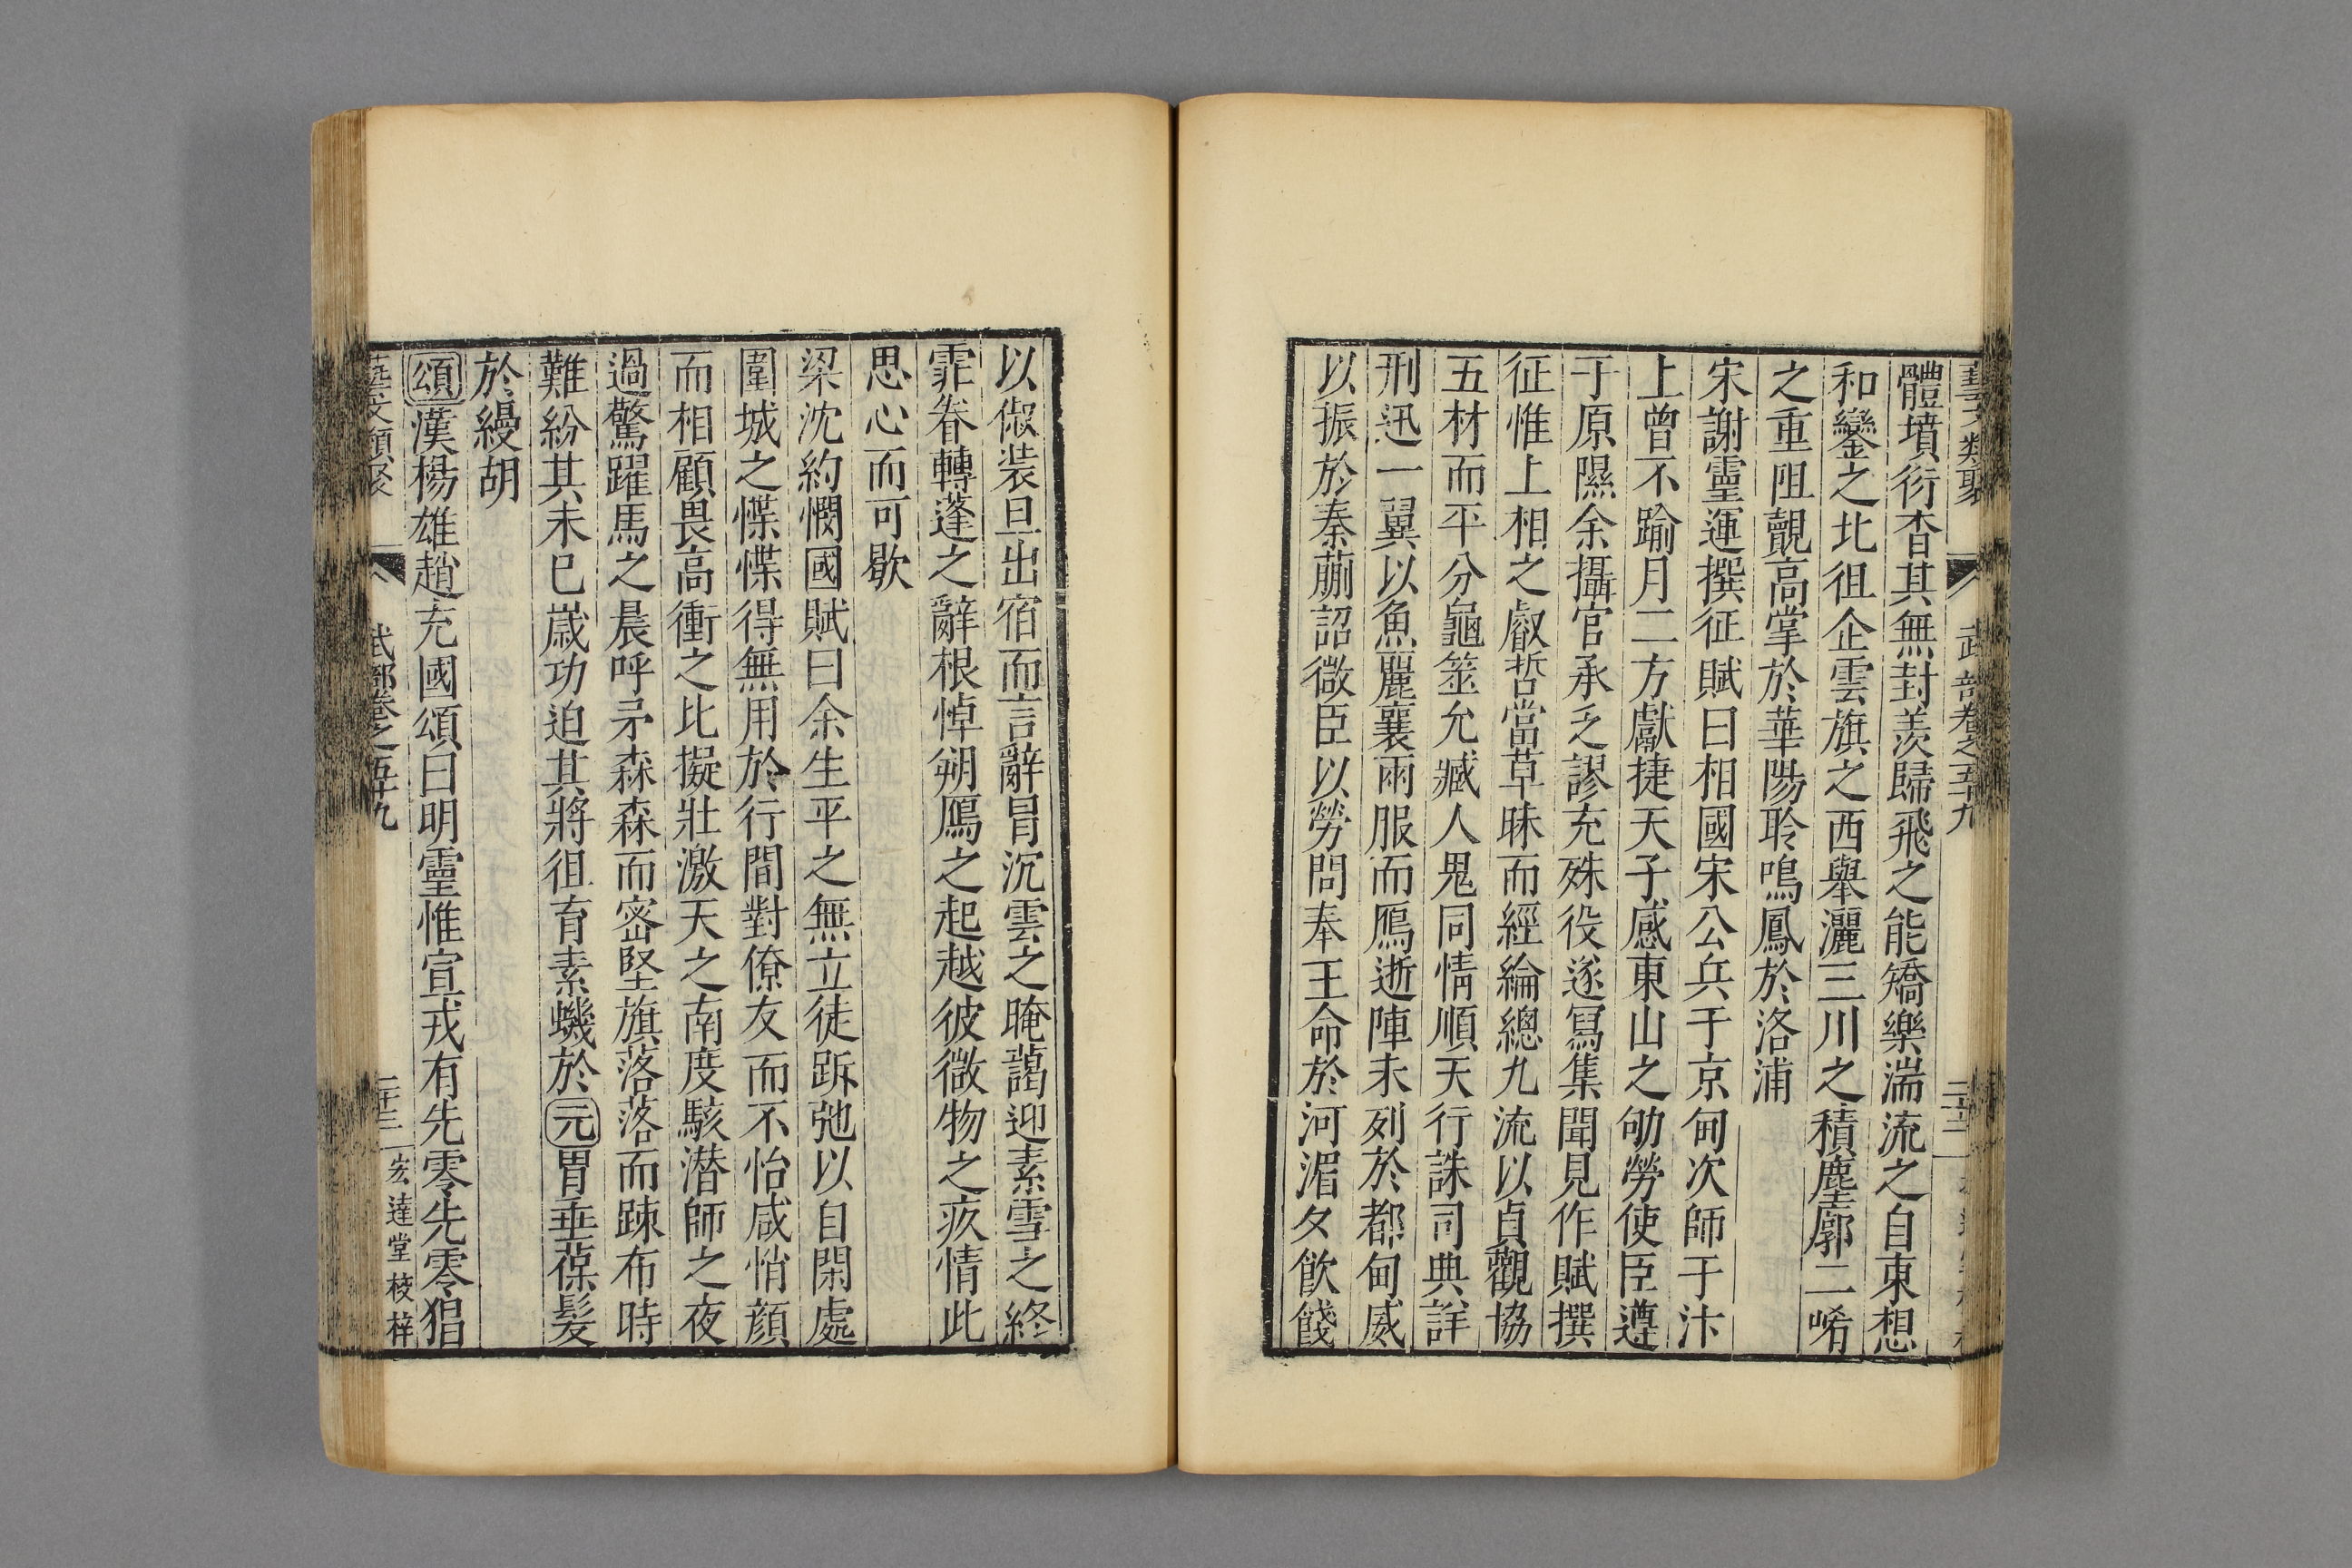 藝文類聚 武部卷之五十九
體墳衍杳其無封羨歸飛之能矯樂湍流之自東想
和鑾之北徂企雲旗之西舉灑三川之積塵廓二崤
之重阻覿高掌於華陽聆鳴鳳於洛浦
宋謝靈運撰征賦曰相國宋公兵于京甸次師于汴
上曾不踰月二方獻捷天子感東山之劬勞使臣遵
于原隰余攝官承乏謬充殊役遂冩集聞見作賦撰
征惟上相之叡哲當草昧而經綸總九流以貞觀協
五材而平分龜筮允臧人鬼同情順天行誅司典詳
刑迅一翼以魚麗襄兩服而鴈逝陣未列於都甸威
以振於秦蒯詔微臣以勞問奉王命於河湄夕飲餞
以俶装旦出宿而言辭冐沉雲之晻藹迎素雪之終
霏眷轉蓬之辭根悼朔鴈之起越彼微物之疚情此
思心而可歇
梁沈約憫國賦曰余生平之無立徒跅弛以自閑處
圍城之惵惵得無用於行間對僚友而不怡咸悄顔
而相顧畏高衝之比擬壯激天之南度駭潜師之夜
過驚躍馬之晨呼矛森森而密堅旗落落而踈布時
難紛其未已嵗功迫其將徂育素蟣於元胃垂葆髮
於縵胡
頌漢楊雄趙充國頌曰明靈惟宣戎有先零先零猖
藝文類聚 武部卷之五十九 二十三 宏達堂校梓